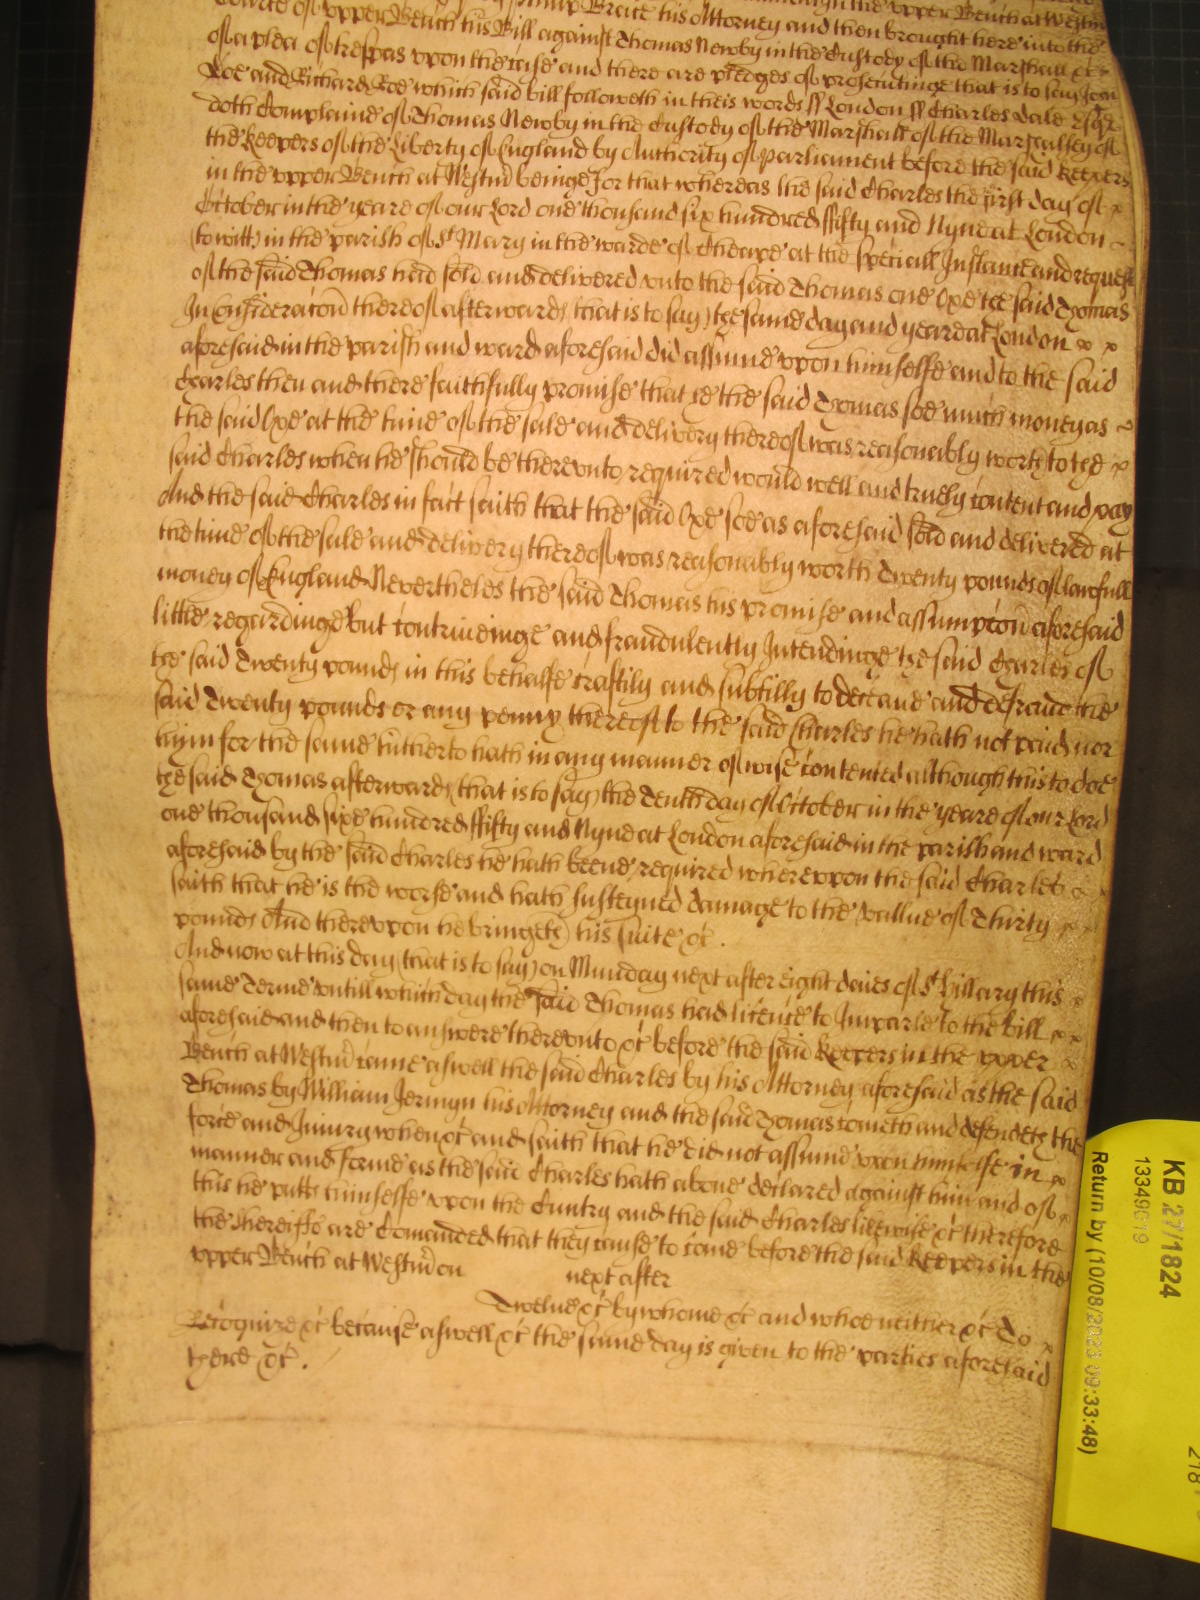 Courte of vpper Bench this Bill against Thomas Newby in the Custody of the Marshall &c
of a plea of trespas vpon the case and there are pledges of prosecutinge that is to say John
Doe and Richard Roe which said bill followeth in theis words ss London ss Charles Dale Esqr
doth Complaine of Thomas Newby in the Custody of the Marshall of the Marshalsey of
the Keepers of the Liberty of England by Authority of Parliament before the said Keepers
in the vpper Bench at Westmr beinge For that whereas the said Charles the first day of
October in the yeare of our Lord one thousand six hundred ffifty and Nyne at London
(to witt) in the parish of St Mary in the warde of Cheape at the speciall Instance and request
of the said Thomas had sold and delivered vnto the said Thomas one Oxe the said Thomas
In consideracon thereof afterwards (that is to say) the same day and yeare at London
aforesaid in the parish and ward aforesaid did assume vpon himselfe and to the said
Charles then and there faithfully promise that he the said Thomas soe much money as
the said Oxe at the time of the sale and delivery thereof was reasonably worth to the
said Charles when he should be therevnto required would well and truely content and pay
And the said Charles in fact saith that the said Oxe soe as aforesaid sold and delivered at
the time of the sale and delivery thereof was reasonably worth Twenty pounds of lawfull
money of England Nevertheles the said Thomas his promise and assumpcon aforesaid
little regardinge but contriueinge and fraudulently Intendinge the said Charles of
the said Twenty pounds in this behalfe craftily and subtilly to deceaue and defraud the
said Twenty pounds or any penny thereof to the said Charles he hath not paid nor
him for the same hitherto hath in any manner of wise contented although this to doe
the said Thomas afterwards (that is to say) the Tenth day of October in the yeare of our Lord
one thousand sixe hundred ffifty and Nyne at London aforesaid in the parish and ward
aforesaid by the said Charles he hath beene required wherevpon the said Charles
saith that he is the worse and hath susteyned damage to the vallue of Thirty
pounds And therevpon he bringeth his suite &c.
And now at this day (that is to say) on Munday next after eight daies of St Hillary this
same Terme vntill which day the said Thomas had licence to Imparle to the bill
aforesaid and then to answere therevnto &c before the said Keepers in the vpper
Bench at Westmr came aswell the said Charles by his Attorney aforesaid as the said
Thomas by William Jermyn his Attorney and the said Thomas cometh and defendeth the
force and Iniury when &c and saith that he did not assume vpon himselfe in
manner and forme as the said Charles hath aboue declared against him and of
this he putts himselfe vpon the Cuntry and the said Charles likewise &c therefore
the Shereiffs are Comanded that they cause to come before the said Keepers in the
vpper Bench at Westmr on next after
Twelue &c by whome &c and whoe neither &c To
Recognize &c because aswell &c the same day is given to the parties aforesaid
there &c.
KB 27/1824
13349019
Return by (10/08/2023 09:33:48)